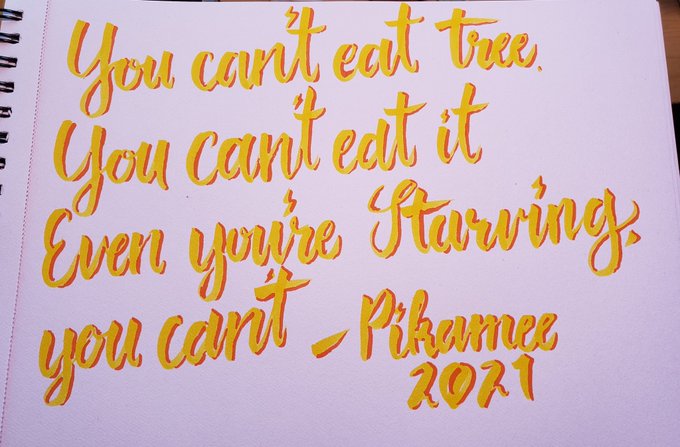 You can't eat tree.
You can't eat it
Even you're Starving,
you can't - Pikamee
2021